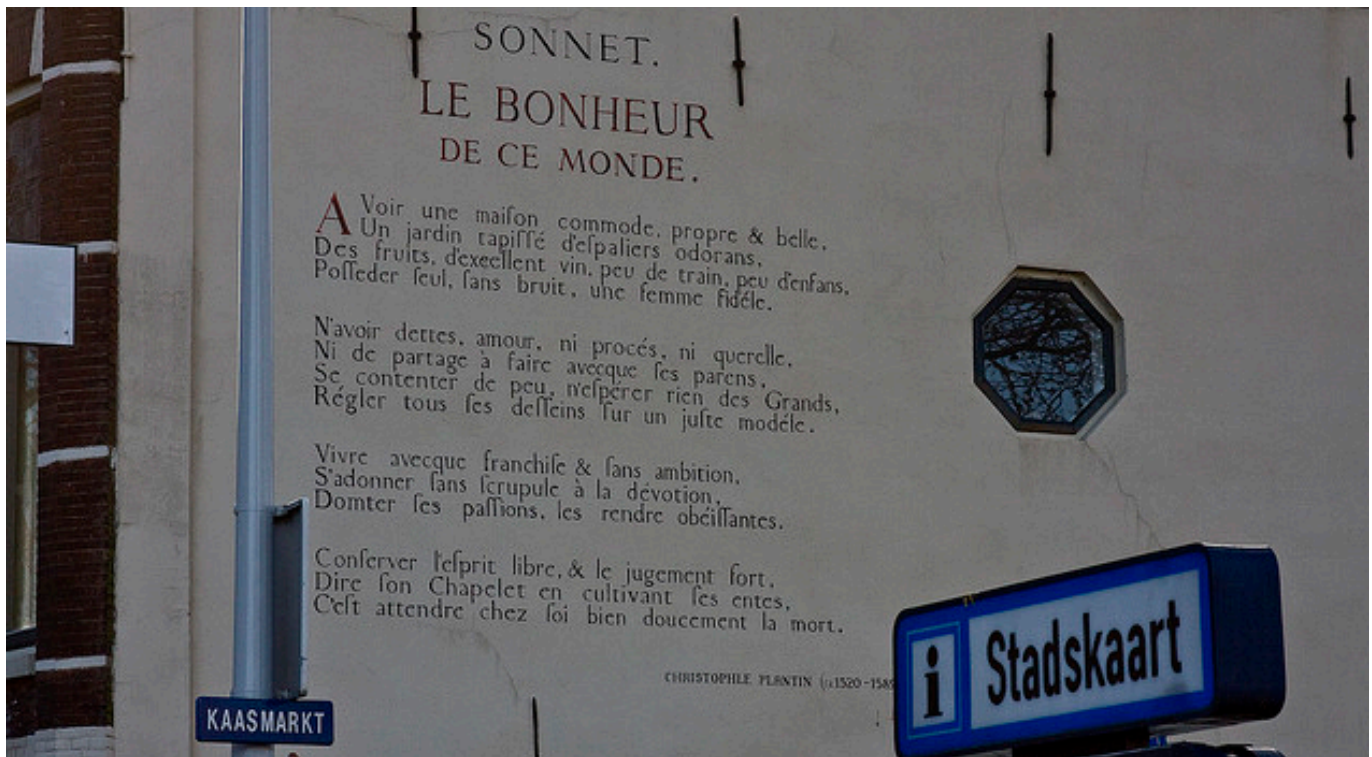 SONNET.
LE BONHEUR
DE CE MONDE.
AVoir une maiſon commode, propre & belle,
Un jardin tapiſſé d'eſpaliers odorans,
Des fruits, d'excellent vin, peu de train, peu d'enfans,
Poſſeder ſeul, ſans bruit, une femme fidéle.
N'avoir dettes, amour, ni procés, ni querelle,
Ni de partage à faire avecque ſes parens,
Se contenter de peu, n'eſpérer rien des Grands,
Régler tous ſes deſſeins ſur un juſte modéle.
Vivre avecque franchiſe & ſans ambition,
S'adonner ſans ſcrupule à la dévotion,
Domter ſes paſſions, les rendre obéiſſantes.
Conſerver l'eſprit libre, & le jugement fort,
Dire ſon Chapelet en cultivant ſes entes,
C'eſt attendre chez ſoi bien doucement la mort.
CHRISTOPHLE PLANTIN (±1520-1589
KAASMARKT
i Stadskaart